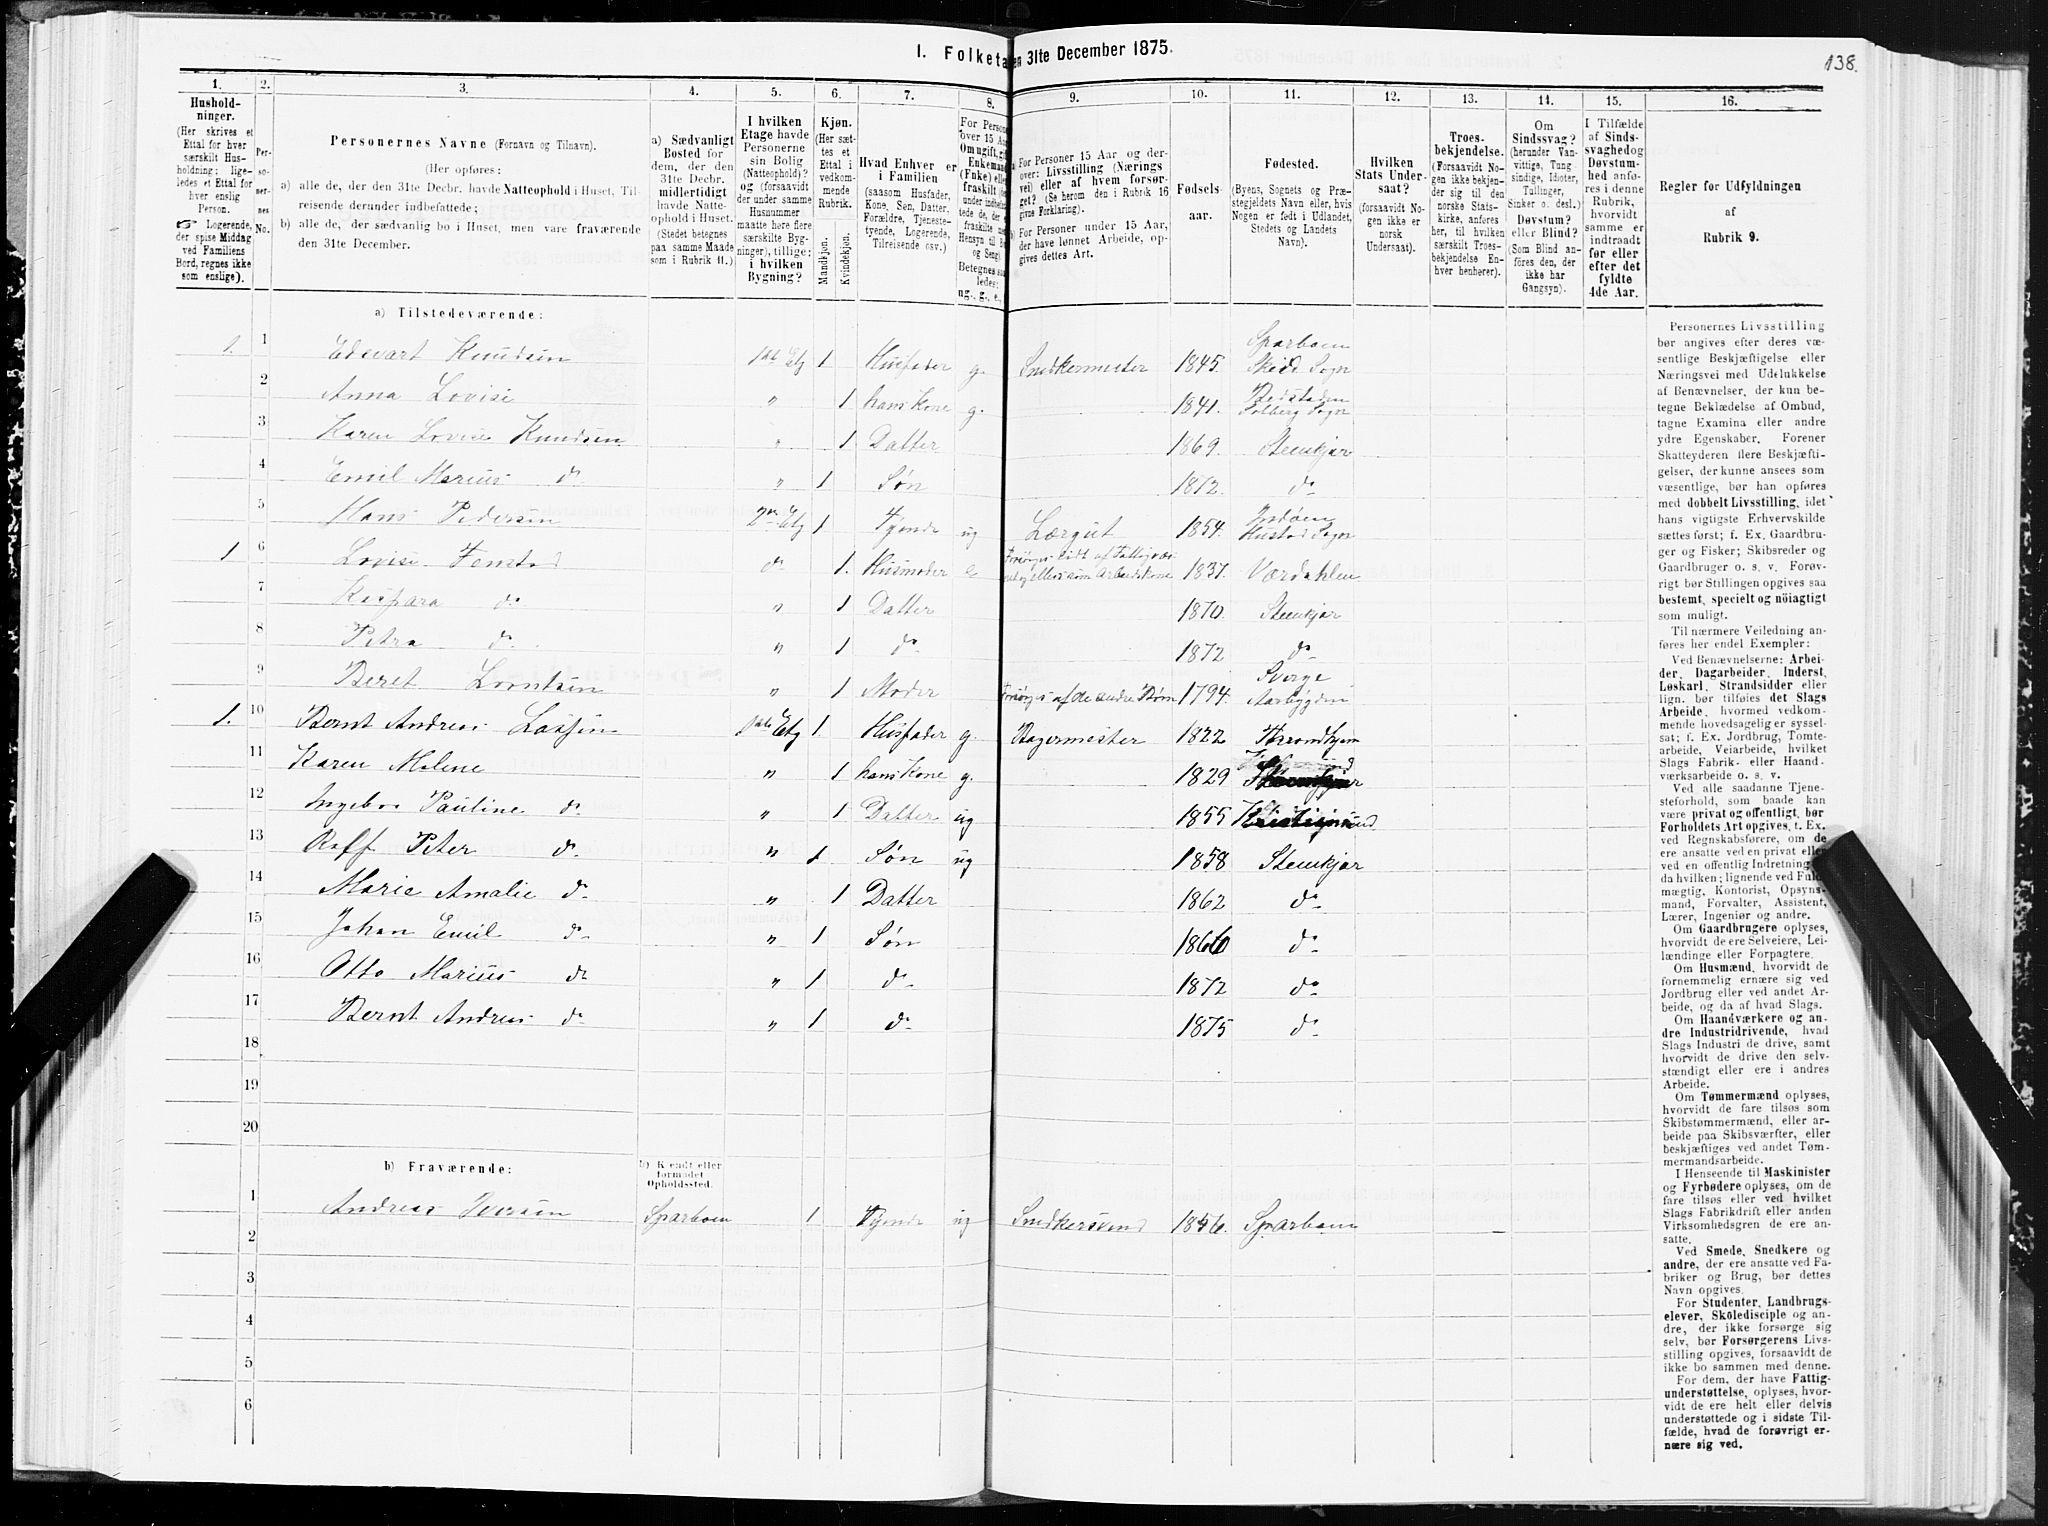 I. Folketa en 31te December 1875.
138.
1. 2. 3. 4. 5. 6. 7. 8. 9. 10. 11. 12. 13. 14. 15. 16.
Hushold-
ninger.
(Her skrives et
Ettal for hver
særskilt Hus-
holdning; lige-
ledes et Ettal for
hver enslig
Person.
☞ Logerende,
der spise Middag
ved Familiens
Bord, regnes ikke
som enslige).
Per-
so-
ner-
nes
No.
Personernes Navne (Fornavn og Tilnavn).
(Her opføres:
a) alle de, der den 31te Decbr. havde Natteophold i Huset, Til-
reisende derunder indbefattede;
b) alle de, der sædvanlig bo i Huset, men vare fraværende
den 31te December.
a) Sædvanligt
Bosted for
dem, der den
31te Decbr.
midlertidigt
havde Natte-
ophold i Huset.
(Stedet betegnes
paa samme Maade
som i Rubrik 11.)
I hvilken
Etage havde
Personerne
sin Bolig
(Natteophold)?
og (forsaavidt
der under samme
Husnummer
maatte høre flere
særskilte Byg-
ninger), tillige:
i hvilken
Bygning?
Kjøn.
(Her sæt-
tes et
Ettal i
vedkom-
mende
Rubrik.
Mandkjøn.
Kvindekjøn.
Hvad Enhver er
i Familien
(saasom Husfader,
Kone, Søn, Datter,
Forældre, Tjeneste-
tyende, Logerende,
Tilreisende osv.)
For Person
over 15 Aa
Om ugift, gif
Enkeman
(Enke) elle
fraskilt
Betegnes saa
ledes:
ug., g., e.,
a For Personer 15 Aar og der-
over: Livsstilling (Nærings
vei) eller af hvem forsør-
get? (Se herom den i Rubrik 16
givne Forklaring).
b For Personer under 15 Aar,
der have lønnet Arbeide, op-
gives dettes Art.
Fødsels-
aar.
Fødested.
(Byens, Sognets og Præ-
stegjeldets Navn eller, hvis
Nogen er født i Udlandet,
Stedets og Landets
Navn).
Hvilken
Stats Under-
saat?
(forsaavidt No-
gen ikke er
norsk
Undersaat).
Troes-
bekjendelse.
(Forsaavidt No-
gen ikke bekjen-
der sig til den
norske Stats-
kirke, anføres
her, til hvilken
særskilt Troes-
bekjendelse En-
hver henhører).
Om
Sindssvag?
(herunder Van-
vittige, Tung
sindige, Idioter,
Tullinger,
Sinker o. desl.)
Døvstum?
eller Blind?
(Som Blind an-
føres den, der
ikke har
Gangsyn).
I Tilfælde
af Sinds-
svaghed og
Døvstum-
hed anfø-
res i denne
Rubrik,
hvorvidt
samme er
indtraadt
før eller
efter det
fyldte
4de Aar.
Regler for Udfyldningen
af
Rubrik 9.
a) Tilstedeværende:
1. 1 Edevart Knudsen 1ste Etg 1 Husfader g. Snedkermester 1845. Sparboen Skeid Sogn
2 Anna Lovise " 1 hans Kone g. 1841. Sogn
3 Karen Lovise Knudsen " 1 Datter 1869. Steenkjær
4 Emil Marius do " 1 Søn 1872. do
5 Hans Pedersen 2den Etg 1 Tyende ug Lærgut 1854. Inderøen Hustad Sogn
1 6 Lovise Femstad do 1. Husmoder e som Arbeidskone 1837. Værdahlen
7 Kaspara do " 1 Datter 1870. Steenkjær
8 Petra do " 1 do 1872 do
9 Beret Lorntsen " 1 Moder Forsørges af de andre Børn 1794. Sverge
1. 10 Bernt Andreas Lassen 1ste Etg 1 Husfader g. Bagermester 1822 Throndhjem
11 Karen Malene " 1 hans Kone g. 1829
12 Ingebor Pauline do " 1 Datter ug 1855
13 Rolf Peter do " 1 Søn ug 1858 Steenkjær
14 Marie Amalie do " 1 Datter 1862 do
15 Johan Emil do " 1 Søn 1866 do
16 Otto Marius do " 1 do 1872 do
17 Bernt Andreas do " 1 do 1875 do
18
19
20
b) Fraværende:
b) Kjendt eller
formodet
Opholdssted.
1 Andreas Iversen Sparboen 1 Tyende ug Snedkersvend 1856. Sparboen
2
3
4
5
6
Personernes Livsstilling
bør angives efter deres væ-
sentlige Beskjæftigelse eller
Næringsvei med Udelukkelse
af Benævnelser, der kun be-
tegne Beklædelse af Ombud,
tagne Examina eller andre
ydre Egenskaber. Forener
Skatteyderen flere Beskjæfti-
gelser, der kunne ansees som
væsentlige, bør han opføres
med dobbelt Livsstilling, idet
hans vigtigste Erhvervskilde
sættes først; f. Ex. Gaardbru-
ger og Fisker; Skibsreder og
Gaardbruger o. s. v. Forøv-
rigt bør Stillingen opgives saa
bestemt, specielt og nöiagtigt
som muligt.
Til nærmere Veiledning an-
føres her endel Exempler:
Ved Benævnelserne: Arbei-
der, Dagarbeider, Inderst,
Løskarl, Strandsidder eller
lign. bør tilføies det Slags
Arbeide, hvormed vedkom-
mende hovedsagelig er syssel-
sat; f. Ex. Jordbrug, Tomte-
arbeide, Veiarbeide, hvilket
Slags Fabrik- eller Haand-
værksarbeide o. s. v.
Ved alle saadanne Tjene-
steforhold, som baade kan
være privat og offentligt, bør
Forholdets Art opgives, t. Ex.
ved Regnskabsførere, om de
ere ansatte ved en privat eller
ved en offentlig Indretning og
da hvilken; lignende ved Fuld-
mægtig, Kontorist, Opsyns-
mand, Forvalter, Assistent,
Lærer, Ingeniør og andre.
Om Gaardbrugere oplyses,
hvorvidt de ere Selveiere, Lei-
lændinge eller Forpagtere.
Om Husmænd, hvorvidt de
fornemmelig ernære sig ved
Jordbrug eller ved andet Ar-
beide, og da af hvad Slags.
Om Haandværkere og an-
dre Industridrivende, hvad
Slags Industri de drive, samt
hvorvidt de drive den selv-
stændigt eller ere i andres
Arbeide.
Om Tømmermænd oplyses,
hvorvidt de fare tilsøs som
Skibstømmermænd, eller ar-
beide paa Skibsværfter, eller
beskjæftiges ved andet Tøm-
mermandsarbeide.
I Henseende til Maskinister
og Fyrbødere oplyses, om de
fare tilsøs eller ved hvilket
Slags Fabrikdrift eller anden
Virksomhedsgren de ere an-
satte.
Ved Smede, Snedkere og
andre, der ere ansatte ved Fa-
briker og Brug, bør dettes
Navn opgives.
For Studenter, Landbrugs-
elever, Skoledisciple og an-
dre, der ikke forsørge sig
selv, bør Forsørgerens Livs-
stilling opgives, forsaavidt de
ikke bo sammen med denne.
For dem, der have Fattig-
understøttelse, oplyses, hvor-
vidt de ere helt eller delvis
understøttede og i sidste Til-
fælde, hvad de forøvrigt er-
nære sig ved.